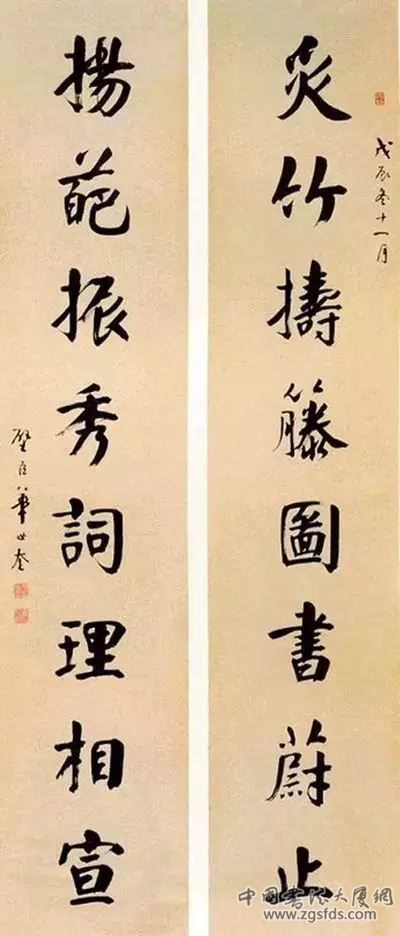 戊辰冬十一月
炙竹擣籐圖書蔚止
揚葩振秀詞理相宣
璧臣華世奎
中国书法大厦網
www.zgsfds.com